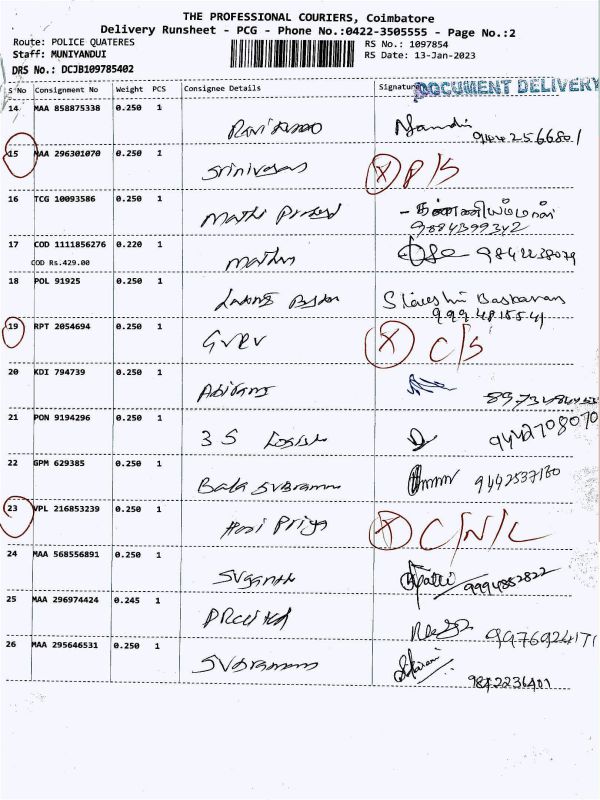 THE PROFESSIONAL COURIERS, Coimbatore
Delivery Runsheet - PCG - Phone No.:0422-3505555 - Page No.:2
Route: POLICE QUATERES
RS No.: 1097854
Staff: MUNIYANDUI
RS Date: 13-Jan-2023
DRS No.: DCJB109785402
S No Consignment No Weight PCS Consignee Details Signature
DOCUMENT DELIVERY
14 MAA 858875338 0.250 1
9442566801
15 MAA 296301070 0.250 1 Srinivasan X P/S
16 TCG 10093586 0.250 1 Mathi Prasad
9884399342
17 COD 1111856276 0.220 1 Mathu 9842238079
COD Rs.429.00
18 POL 91925 0.250 1 Baskaran
9994815541
19 RPT 2054694 0.250 1 GVRV X C/S
20 KDI 794739 0.250 1 Abirami
21 PON 9194296 0.250 1 3 S 9442708070
22 GPM 629385 0.250 1 Bala Subramani 9442537130
23 VPL 216853239 0.250 1 Hari Priya X C/N/L
24 MAA 568556891 0.250 1 Suganth 9994852822
25 MAA 296974424 0.245 1 9976924171
26 MAA 295646531 0.250 1 9842236401